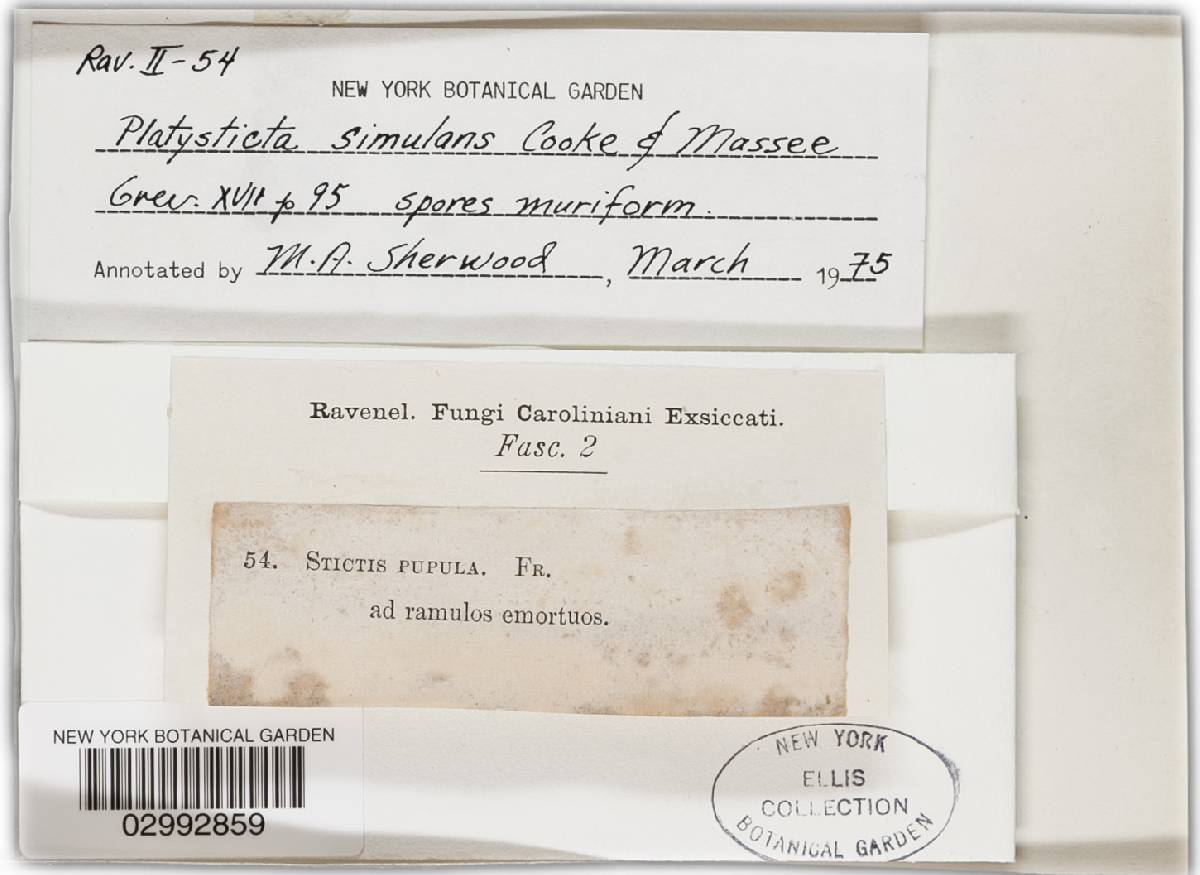 Rav. II-54
NEW YORK BOTANICAL GARDEN
Platysticta simulans Cooke & Massee
Grev. XVII p 95 spores muriform.
Annotated by M.A. Sherwood, March 1975
Ravenel. Fungi Caroliniani Exsiccati.
Fasc. 2
54. STICTIS PUPULA. FR.
ad ramulos emortuos.
NEW YORK BOTANICAL GARDEN
02992859
NEW YORK
ELLIS
COLLECTION
BOTANICAL GARDEN